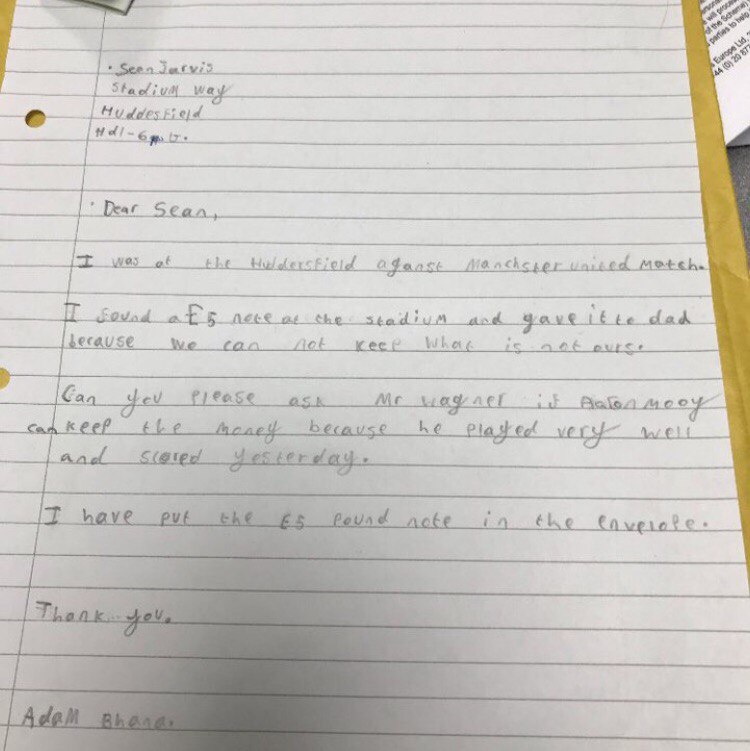 Sean Jarvis
Stadium way
Huddesfield
Hd1-6
Dear Sean,
I was at the Huldersfield aganst Manchster united match.
I found a £5 note at the stadium and gave it to dad
because we can not keep what is not ours.
Can you please ask Mr wagner if Aaron mooy
can keep the money because he played very well
and scored yesterday.
I have put the £5 pound note in the envelope.
Thank you.
Adam Bhana.
will process
of the Scheme)
parties to help
Europe Ltd,
44 (0) 20 87